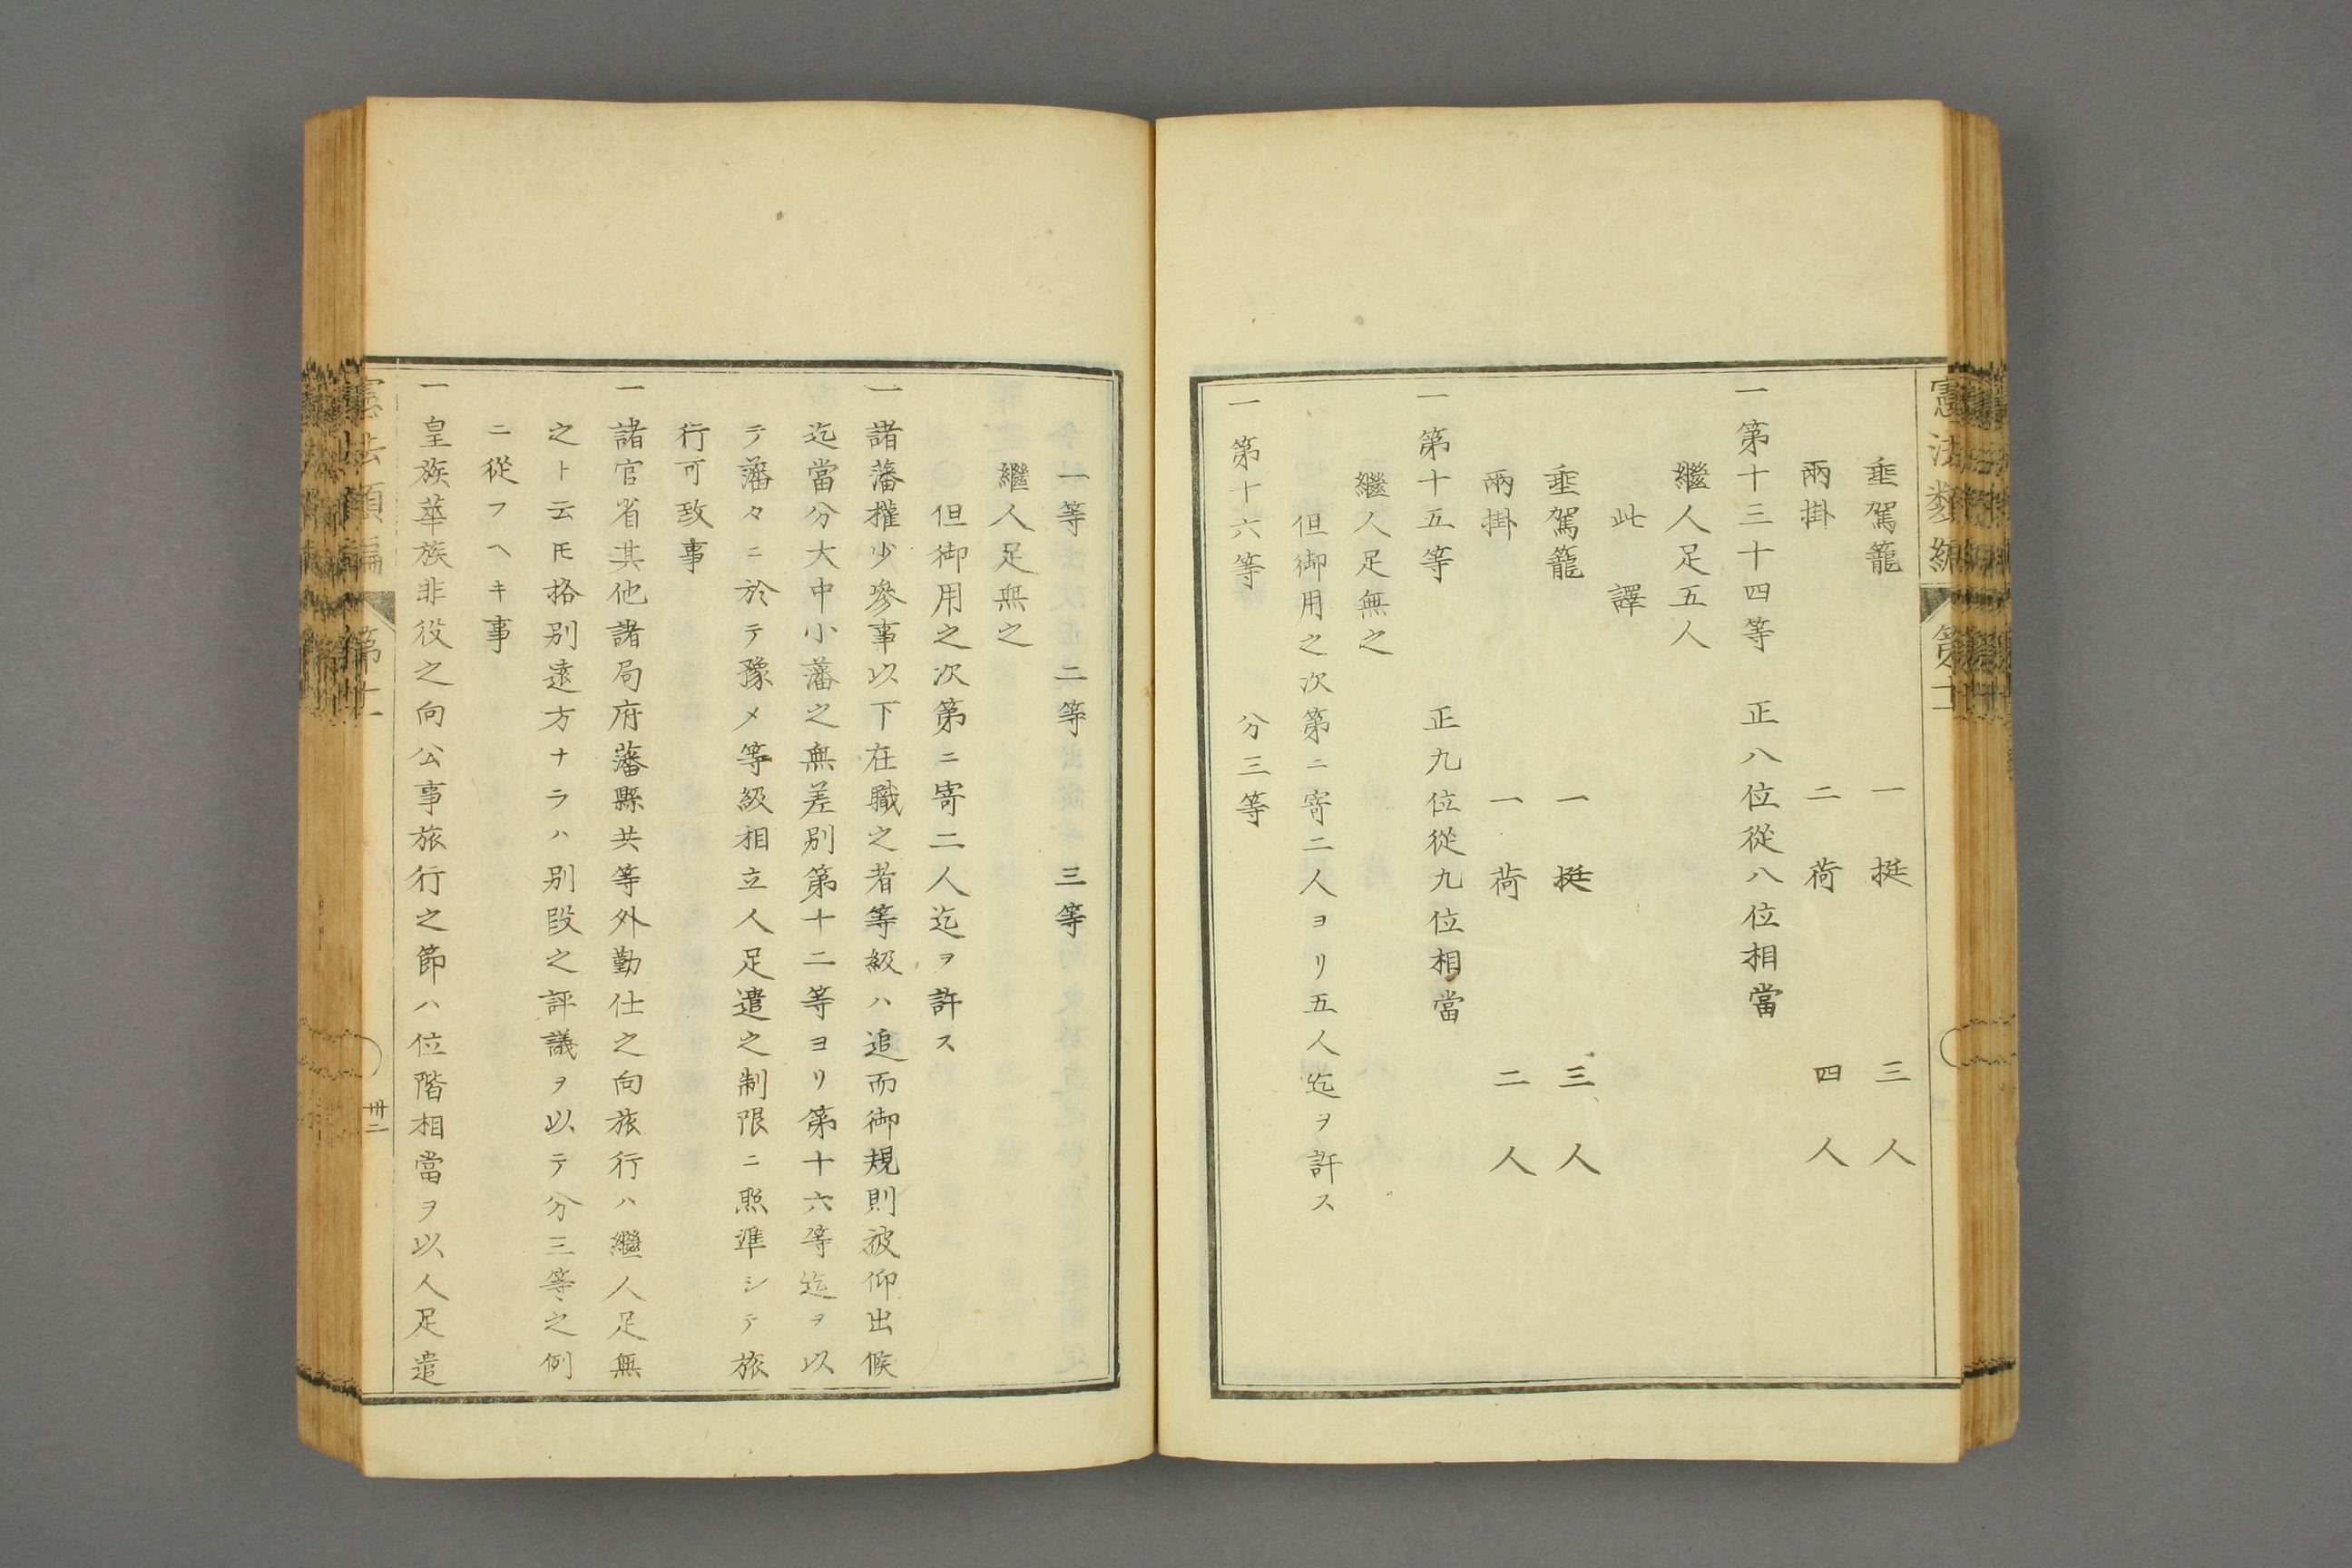 憲法類編 第十
垂駕籠 一挺 三人
兩掛 二荷 四人
一 第十三十四等 正八位從八位相當
繼人足五人
此譯
垂駕籠 一挺 三人
兩掛 一荷 二人
一 第十五等 正九位從九位相當
繼人足無之
但御用之次第ニ寄二人ヨリ五人迄ヲ許ス
一 第十六等 分三等
一等 二等 三等
繼人足無之
但御用之次第ニ寄二人迄ヲ許ス
一 諸藩權少參事以下在職之者等級ハ追而御規則被仰出候
迄當分大中小藩之無差別第十二等ヨリ第十六等迄ヲ以
テ藩々ニ於テ豫メ等級相立人足遣之制限ニ照準シテ旅
行可致事
一 諸官省其他諸局府藩縣共等外勤仕之向旅行ハ繼人足無
之ト云𪜈格別遠方ナラハ別段之評議ヲ以テ分三等之例
ニ從フヘキ事
一 皇族華族非役之向公事旅行之節ハ位階相當ヲ以人足遣
憲法類編 第十 卅二